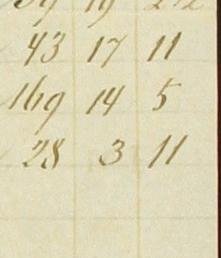 43 17 11
169 14 5
28 3 11